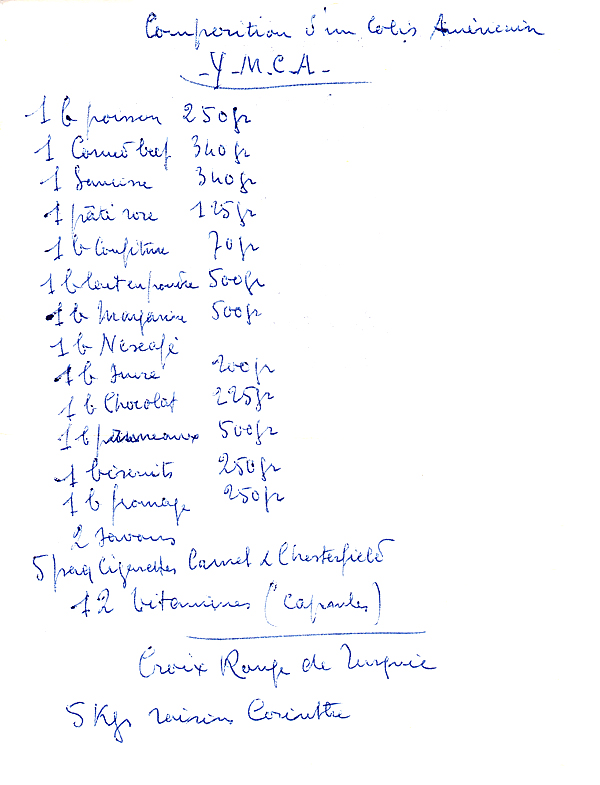 Composition d'un Colis Américain
- Y - M.C.A -
1 b poisson 250gr
1 Corned beef 340gr
1 Saucisse 340gr
1 pâté rose 125gr
1 b Confiture 70gr
1 b lait en poudre 500gr
1 b Margarine 500gr
1 b Nescafé
1 b Sucre 200gr
1 b Chocolat 225gr
1 b pruneaux 500gr
1 biscuits 250gr
1 b fromage 250gr
2 savons
5 paq Cigarettes Camel & Chesterfield
12 vitamines (capsules)
Croix Rouge de Turquie
5 Kgs raisins Corinthe